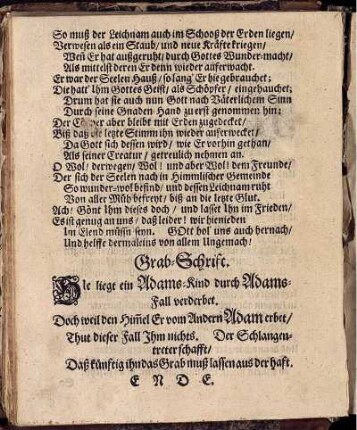 So muß der Leichnam auch im Schooß der Erden liegen/
Verwesen als ein Staub/ und neue Kräfte kriegen/
Weñ Er hat außgeruht/ durch Gottes Wunder-macht/
Als mittelst deren Er denn wieder auferwacht.
Er war der Seelen Hauß/ so lang' Er hie gebrauchet;
Die hatt' Ihm Gottes Geist/ als Schöpfer/ eingehauchet;
Drum hat sie auch nun Gott nach Väterlichem Sinn
Durch seine Gnaden-Hand zu erst genommen hin;
Der Cörper aber bleibt mit Erden zugedecket/
Biß daß die letzte Stimm ihn wieder auferwecket/
Da Gott sich dessen wird/ wie Er vorhin gethan/
Als seiner Creatur/ getreulich nehmen an.
O Wol/ derwegen/ Wol/ und aber Wol! dem Freunde/
Der sich der Seelen nach in Himmlischer Gemeinde
So wunder-wol befind/ und dessen Leichnam ruht
Von aller Müh befreyt/ biß an die letzte Glut.
Ach/ Gönt Ihm dieses doch/ und lasset Ihn im Frieden/
Es ist genug an uns/ daß leider! wir hienieden
Im Elend müssn seyn. GOtt hol' uns auch hernach/
Und helffe dermaleins von allem Ungemach/
Grab-Schrift.
HIe liegt ein Adams-Kind durch Adams-
Fall verderbet.
Doch weil den Him̃el Er vom Andern Adam erbet/
Thut dieser Fall Ihm nichts. Der Schlangen-
treter schafft/
Daß künftig ihn das Grab muß lassen aus der haft.
E N D E.